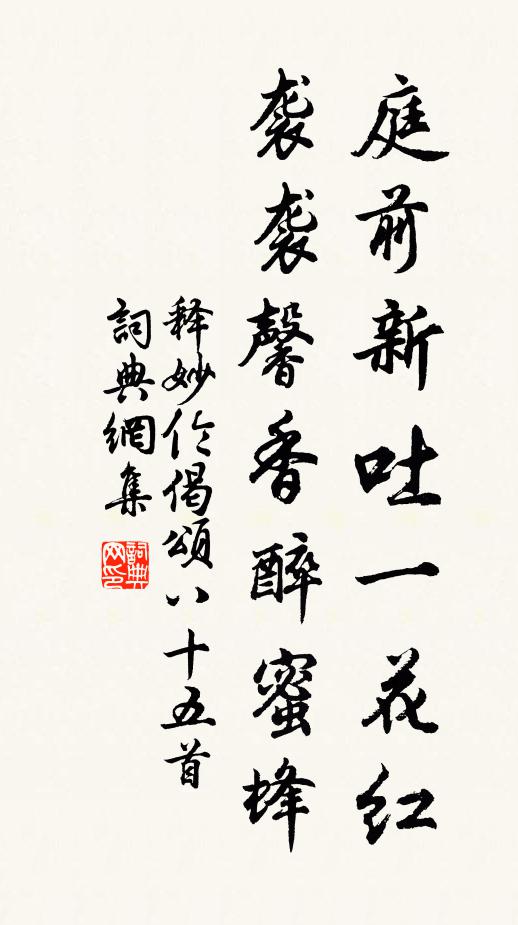 庭前新吐一花红
袭袭馨香醉蜜蜂
释妙伦偈颂八十五首
詞典網集
詞典网印